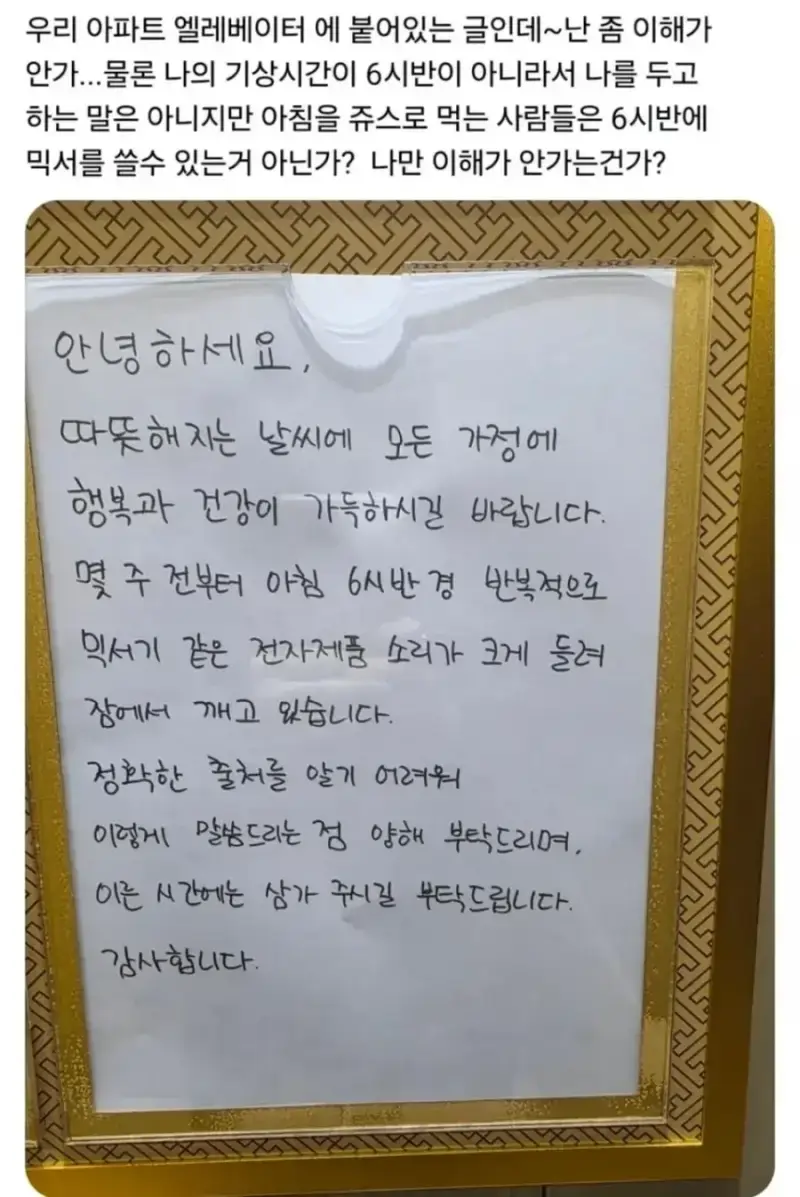 우리 아파트 엘레베이터 에 붙어있는 글인데~난 좀 이해가
안가...물론 나의 기상시간이 6시반이 아니라서 나를 두고
하는 말은 아니지만 아침을 쥬스로 먹는 사람들은 6시반에
믹서를 쓸수 있는거 아닌가? 나만 이해가 안가는건가?
안녕하세요,
따뜻해지는 날씨에 모든 가정에
행복과 건강이 가득하시길 바랍니다.
몇 주 전부터 아침 6시반 경 반복적으로
믹서기 같은 전자제품 소리가 크게 들려
잠에서 깨고 있습니다.
정확한 출처를 알기 어려워
이렇게 말씀드리는 점 양해 부탁드리며,
이른 시간에는 삼가 주시길 부탁드립니다.
감사합니다.